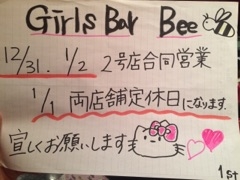 Girls Bar Bee
12/31. 1/2 2号店合同営業
1/1 両店舗定休日になります。
宜しくお願いします
1st